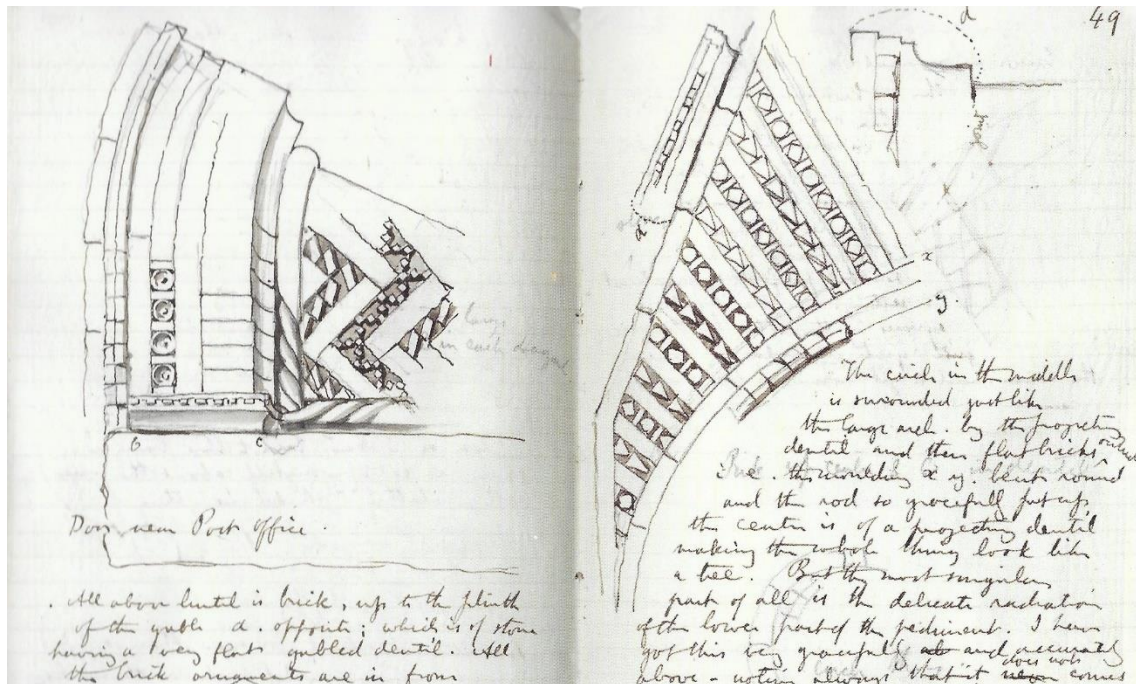 Door near Post Office.
. All above lintel is brick, up to the plinth
of the gable d. opposite; which is of stone
having a very flat gabled dentil. All
the brick ornaments are in from
49
d
x
y.
The circle in the middle
is surrounded just like
the large arch. by the projecting
dentil and then flat bricks
i.e. the moulding x y. bent round
and the rod so gracefully put up
the center is of a projecting dentil
making the whole thing look like
a tree. But the most singular
part of all is the delicate radiation
of the lower part of the pediment. I have
got this very gracefully and accurately
above - noting always that it does not comes